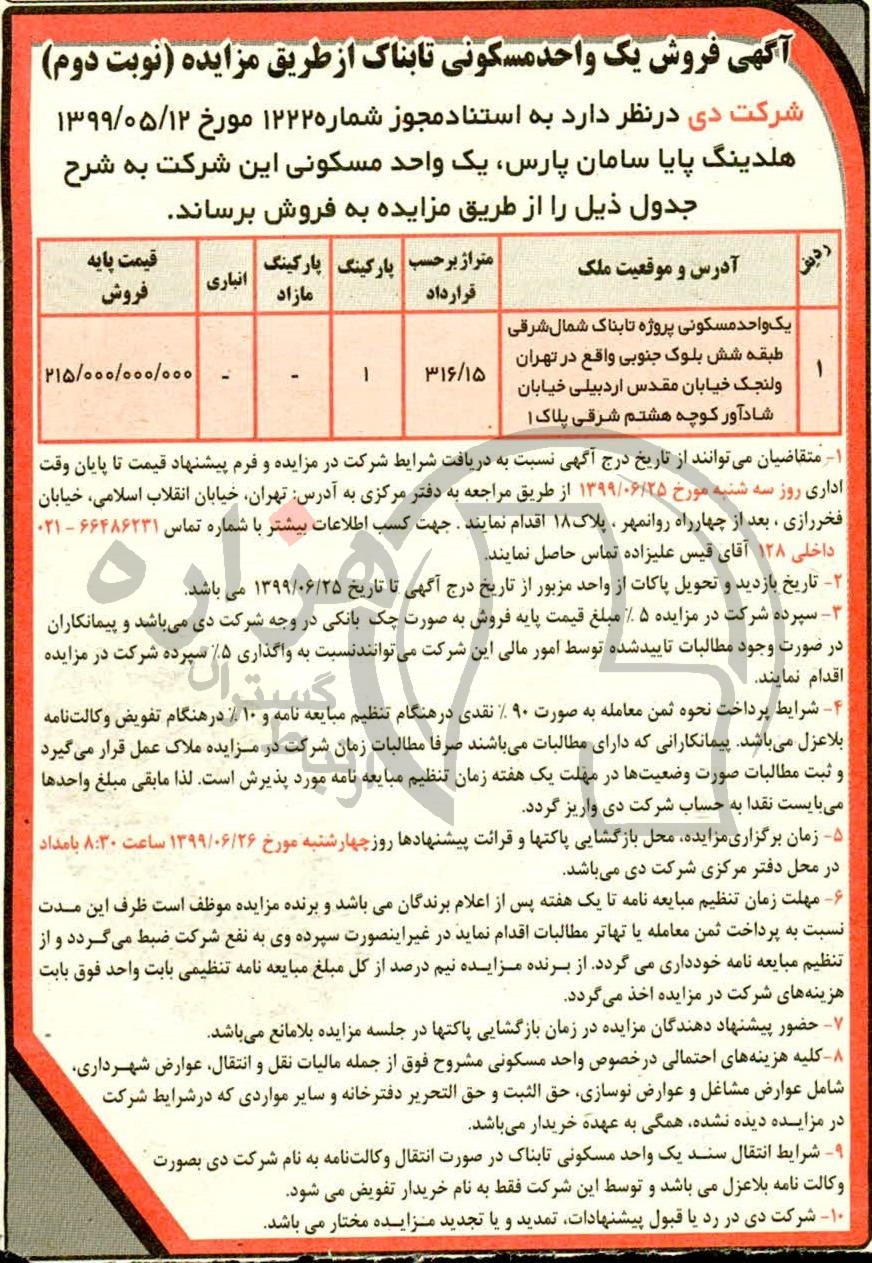 آگهی فروش یک واحدمسکونی تابناک ازطریق مزایده (نوبت دوم)
شرکت دی درنظر دارد به استنادمجوز شماره۱۲۲۲ مورخ ۱۳۹۹/۰۵/۱۲
هلدینگ پایا سامان پارس، یک واحد مسکونی این شرکت به شرح
جدول ذیل را از طریق مزایده به فروش برساند.
ردیف آدرس و موقعیت ملک متراژبرحسب قرارداد پارکینگ پارکینگ مازاد انباری قیمت پایه فروش
۱ یک‌واحدمسکونی پروژه تابناک شمال‌شرقی
طبقه شش بلوک جنوبی واقع در تهران
ولنجک خیابان مقدس اردبیلی خیابان
شادآور کوچه هشتم شرقی پلاک۱
۳۱۶/۱۵ ۱ - - ۲۱۵/۰۰۰/۰۰۰/۰۰۰
۱- متقاضیان می‌توانند از تاریخ درج آگهی نسبت به دریافت شرایط شرکت در مزایده و فرم پیشنهاد قیمت تا پایان وقت
اداری روز سه شنبه مورخ ۱۳۹۹/۰۶/۲۵ از طریق مراجعه به دفتر مرکزی به آدرس: تهران، خیابان انقلاب اسلامی، خیابان
فخررازی ، بعد از چهارراه روانمهر ، پلاک۱۸ اقدام نمایند . جهت کسب اطلاعات بیشتر با شماره تماس ۶۶۴۸۶۲۳۱ - ۰۲۱
داخلی ۱۲۸ آقای قیس علیزاده تماس حاصل نمایند.
۲- تاریخ بازدید و تحویل پاکات از واحد مزبور از تاریخ درج آگهی تا تاریخ ۱۳۹۹/۰۶/۲۵ می باشد.
۳- سپرده شرکت در مزایده ۵ ٪ مبلغ قیمت پایه فروش به صورت چک بانکی در وجه شرکت دی می‌باشد و پیمانکاران
در صورت وجود مطالبات تاییدشده توسط امور مالی این شرکت می‌توانندنسبت به واگذاری ۵٪ سپرده شرکت در مزایده
اقدام نمایند.
۴- شرایط پرداخت نحوه ثمن معامله به صورت ۹۰ ٪ نقدی درهنگام تنظیم مبایعه نامه و ۱۰ ٪ درهنگام تفویض وکالت‌نامه
بلاعزل می‌باشد. پیمانکارانی که دارای مطالبات می‌باشند صرفا مطالبات زمان شرکت در مـزایده ملاک عمل قرار می‌گیرد
و ثبت مطالبات صورت وضعیت‌ها در مهلت یک هفته زمان تنظیم مبایعه نامه مورد پذیرش است. لذا مابقی مبلغ واحدها
می‌بایست نقدا به حساب شرکت دی واریز گردد.
۵- زمان برگزاری‌مزایده، محل بازگشایی پاکتها و قرائت پیشنهادها روزچهارشنبه مورخ ۱۳۹۹/۰۶/۲۶ ساعت ۸:۳۰ بامداد
در محل دفتر مرکزی شرکت دی می‌باشد.
۶- مهلت زمان تنظیم مبایعه نامه تا یک هفته پس از اعلام برندگان می باشد و برنده مزایده موظف است ظرف این مـدت
نسبت به پرداخت ثمن معامله یا تهاتر مطالبات اقدام نماید در غیراینصورت سپرده وی به نفع شرکت ضبط می‌گـردد و از
تنظیم مبایعه نامه خودداری می گردد. از بـرنده مـزایـده نیم درصد از کل مبلغ مبایعه نامه تنظیمی بابت واحد فوق بابت
هزینه‌های شرکت در مزایده اخذ می‌گردد.
۷- حضور پیشنهاد دهندگان مزایده در زمان بازگشایی پاکتها در جلسه مزایده بلامانع می‌باشد.
۸-کلیه هزینه‌های احتمالی درخصوص واحد مسکونی مشروح فوق از جمله مالیات نقل و انتقال، عوارض شهـرداری،
شامل عوارض مشاغل و عوارض نوسازی، حق الثبت و حق التحریر دفترخانه و سایر مواردی که درشرایط شرکت
در مزایـده دیده نشده، همگی به عهده خریدار می‌باشد.
۹- شرایط انتقال سنـد یک واحد مسکونی تابناک در صورت انتقال وکالت‌نامه به نام شرکت دی بصورت
وکالت نامه بلاعزل می باشد و توسط این شرکت فقط به نام خریدار تفویض می شود.
۱۰- شرکت دی در رد یا قبول پیشنهادات، تمدید و یا تجدید مـزایـده مختار می باشد.
هزاره